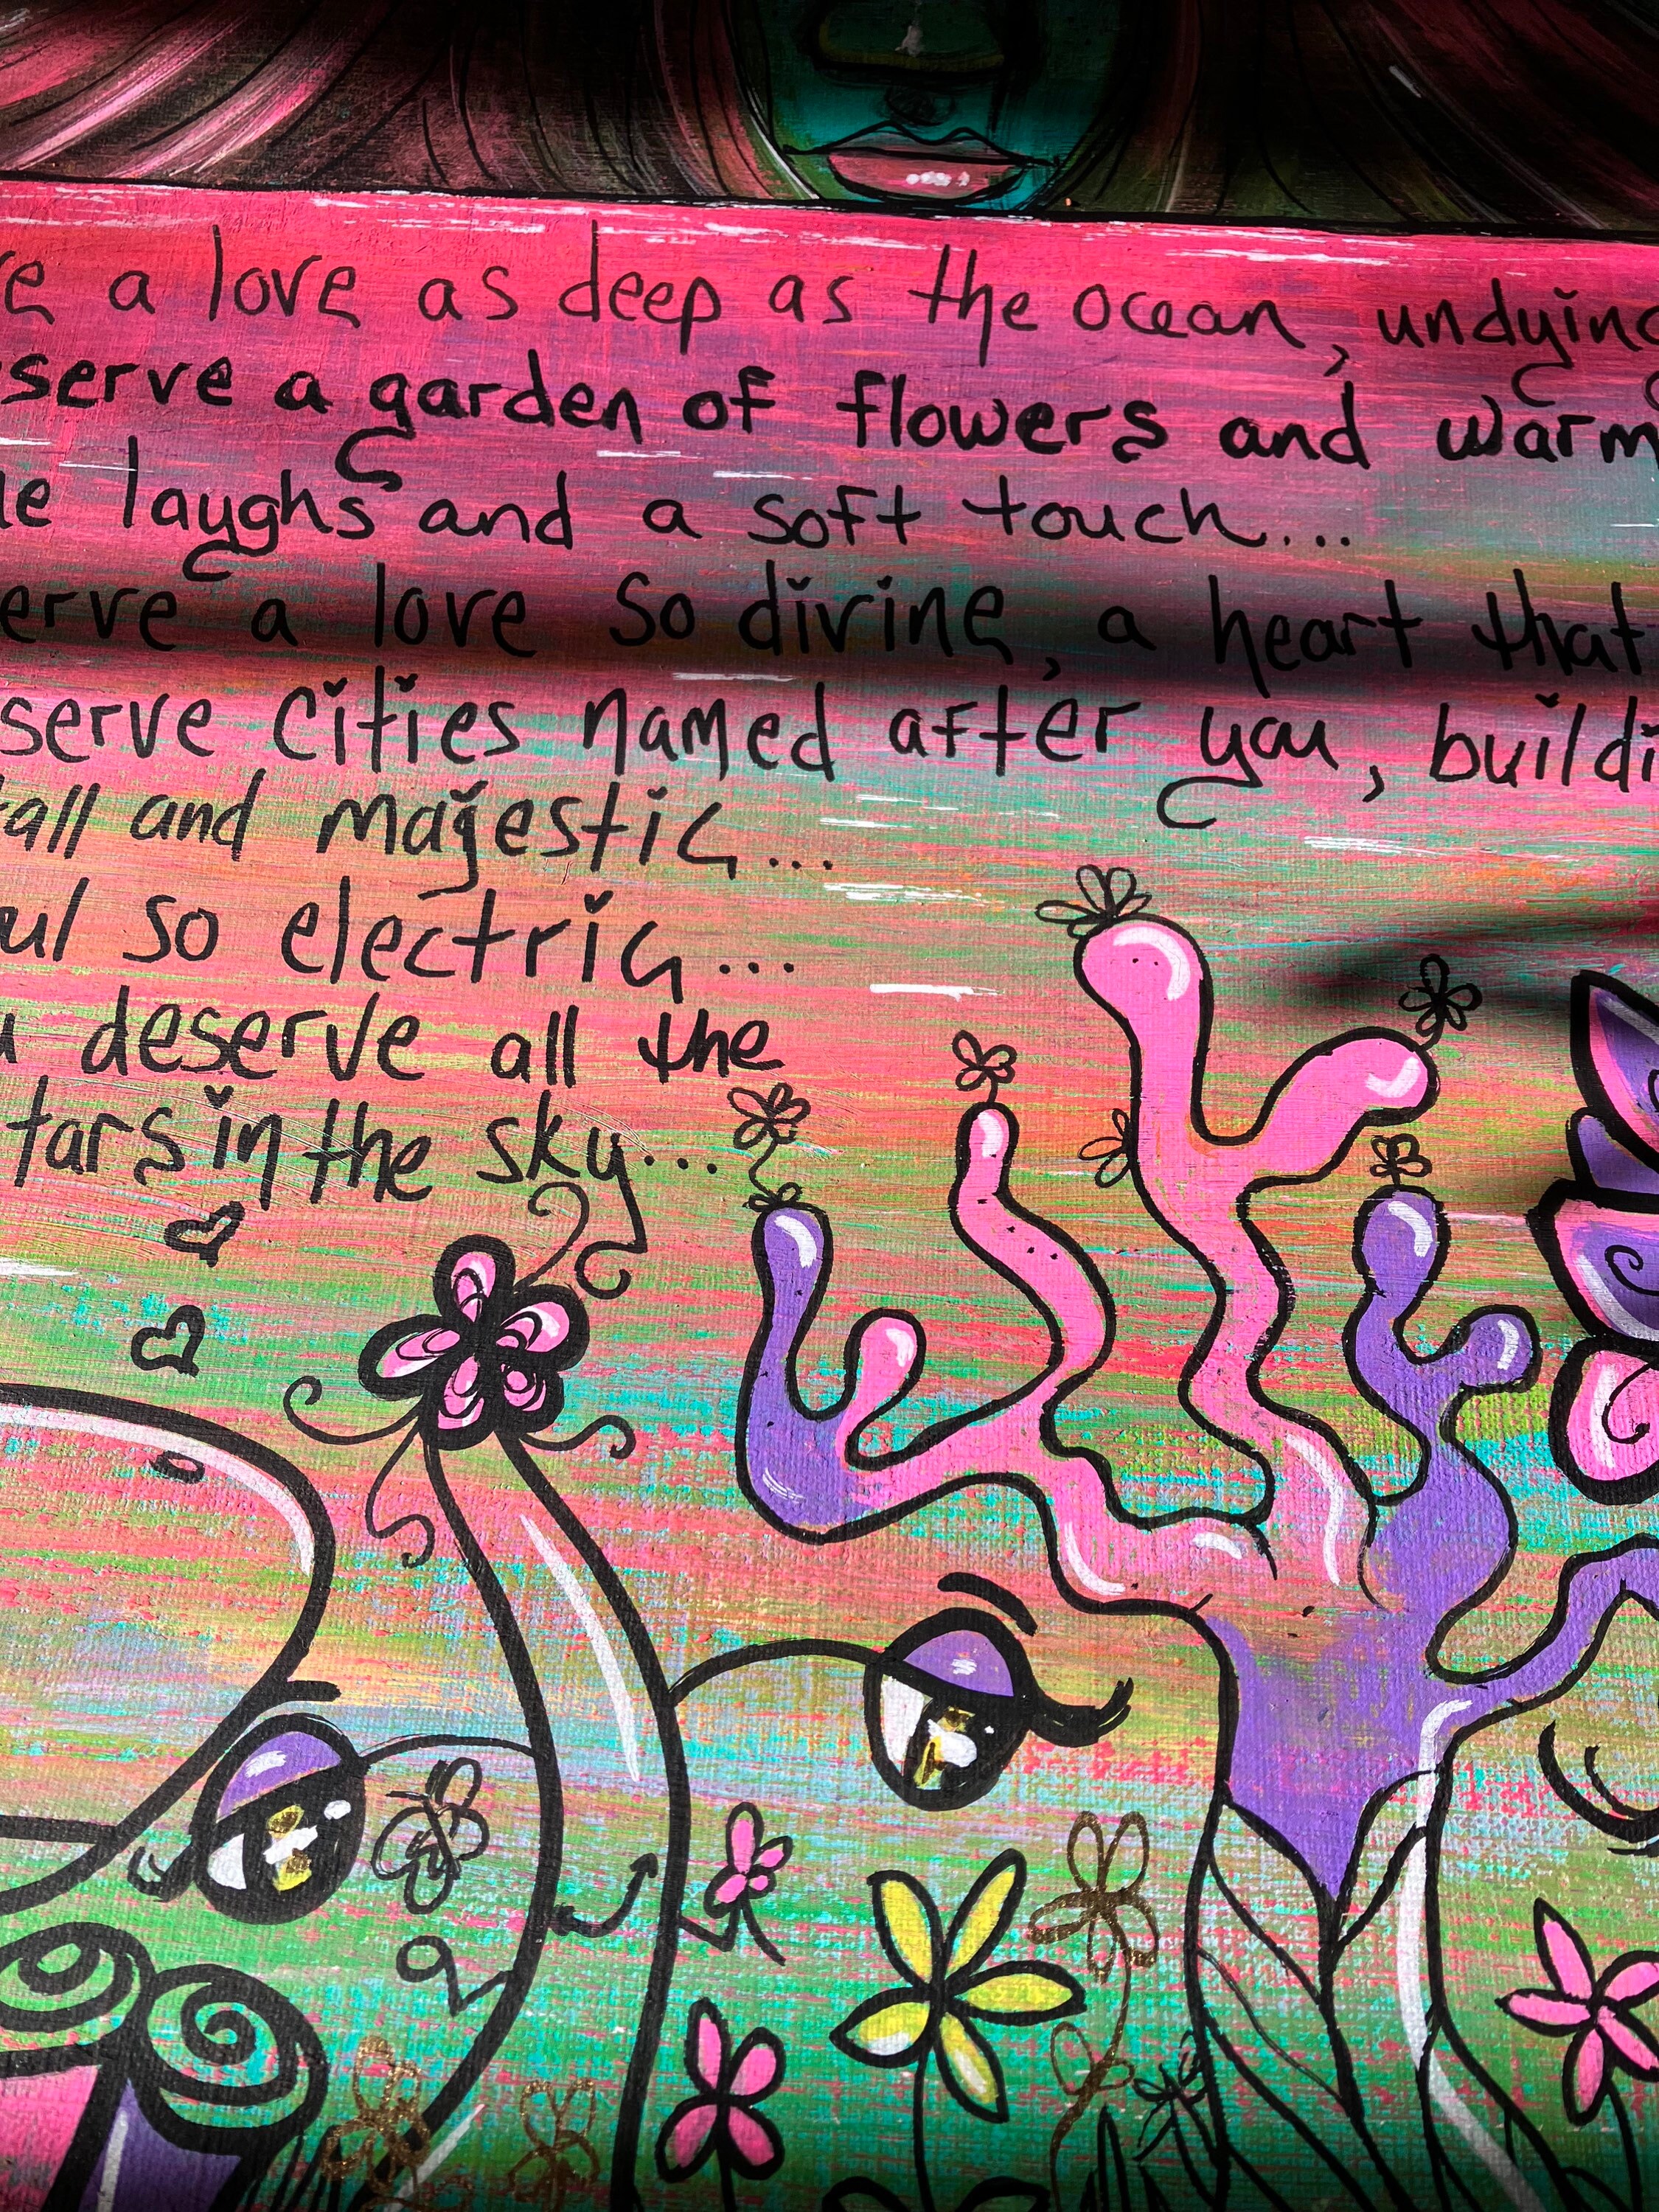 a love as deep as the ocean, undying
serve a garden of flowers and warm
laughs and a soft touch...
erve a love so divine, a heart that
serve cities named after you, buildi
tall and majestic...
ul so electric...
deserve all the
tars in the sky...